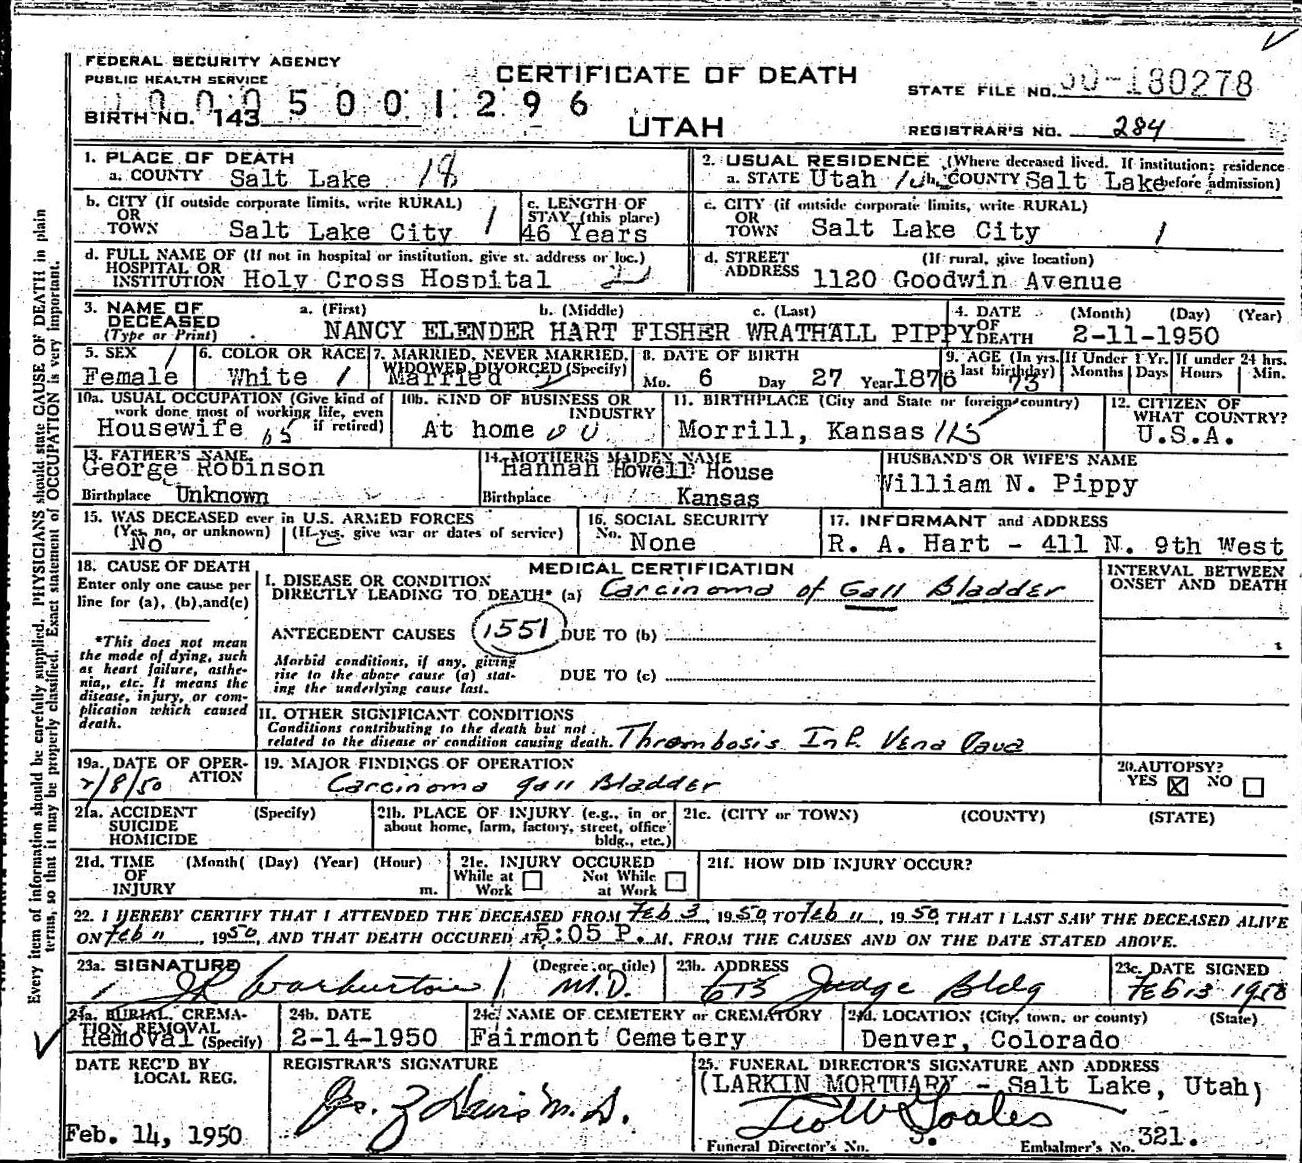 FEDERAL SECURITY AGENCY
PUBLIC HEALTH SERVICE
CERTIFICATE OF DEATH
STATE FILE NO. 50-180278
0 0 0 0 5 0 0 1 2 9 6
BIRTH NO. 143
UTAH
REGISTRAR'S NO. 284
1. PLACE OF DEATH
a. COUNTY Salt Lake 18
2. USUAL RESIDENCE (Where deceased lived. If institution; residence before admission)
a. STATE Utah b. COUNTY Salt Lake
b. CITY (If outside corporate limits, write RURAL)
OR
TOWN Salt Lake City 1
c. LENGTH OF
STAY (this place)
46 Years
c. CITY (if outside corporate limits, write RURAL)
OR
TOWN Salt Lake City 1
d. FULL NAME OF (If not in hospital or institution, give st. address or loc.)
HOSPITAL OR
INSTITUTION Holy Cross Hospital
d. STREET (If rural, give location)
ADDRESS 1120 Goodwin Avenue
3. NAME OF DECEASED
(Type or Print)
a. (First) b. (Middle) c. (Last)
NANCY ELENDER HART FISHER WRATHALL PIPPY
4. DATE OF DEATH (Month) (Day) (Year)
2-11-1950
5. SEX
Female
6. COLOR OR RACE
White
7. MARRIED, NEVER MARRIED,
WIDOWED, DIVORCED (Specify)
Married
8. DATE OF BIRTH
Mo. 6 Day 27 Year 1876
9. AGE (In yrs. last birthday) 73
If Under 1 Yr. Months Days
If under 24 hrs. Hours Min.
10a. USUAL OCCUPATION (Give kind of
work done most of working life, even
if retired)
Housewife
10b. KIND OF BUSINESS OR
INDUSTRY
At home
11. BIRTHPLACE (City and State or foreign country)
Morrill, Kansas
12. CITIZEN OF
WHAT COUNTRY?
U.S.A.
13. FATHER'S NAME
George Robinson
Birthplace Unknown
14. MOTHER'S MAIDEN NAME
Hannah Howell House
Birthplace Kansas
HUSBAND'S OR WIFE'S NAME
William N. Pippy
15. WAS DECEASED ever in U.S. ARMED FORCES
(Yes, no, or unknown) (If yes, give war or dates of service)
No
16. SOCIAL SECURITY
No. None
17. INFORMANT and ADDRESS
R. A. Hart - 411 N. 9th West
18. CAUSE OF DEATH
Enter only one cause per
line for (a), (b), and (c)
*This does not mean
the mode of dying, such
as heart failure, asthe-
nia,, etc. It means the
disease, injury, or com-
plication which caused
death.
MEDICAL CERTIFICATION
INTERVAL BETWEEN
ONSET AND DEATH
I. DISEASE OR CONDITION
DIRECTLY LEADING TO DEATH* (a) Carcinoma of Gall Bladder
ANTECEDENT CAUSES 1551 DUE TO (b)
Morbid conditions, if any, giving
rise to the above cause (a) stat-
ing the underlying cause last.
DUE TO (c)
II. OTHER SIGNIFICANT CONDITIONS
Conditions contributing to the death but not
related to the disease or condition causing death. Thrombosis Inf. Vena Cava
19a. DATE OF OPER-
ATION
2/8/50
19. MAJOR FINDINGS OF OPERATION
Carcinoma gall Bladder
20. AUTOPSY?
YES ☒ NO ☐
21a. ACCIDENT (Specify)
SUICIDE
HOMICIDE
21b. PLACE OF INJURY (e.g., in or
about home, farm, factory, street, office
bldg., etc.)
21c. (CITY or TOWN) (COUNTY) (STATE)
21d. TIME (Month( (Day) (Year) (Hour)
OF
INJURY m.
21e. INJURY OCCURED
While at Work ☐ Not While at Work ☐
21f. HOW DID INJURY OCCUR?
22. I HEREBY CERTIFY THAT I ATTENDED THE DECEASED FROM Feb 3, 1950, TO Feb 11, 1950 THAT I LAST SAW THE DECEASED ALIVE
ON Feb 11, 1950, AND THAT DEATH OCCURED AT 5:05 P. M. FROM THE CAUSES AND ON THE DATE STATED ABOVE.
23a. SIGNATURE (Degree or title)
Warburton M.D.
23b. ADDRESS
615 Judge Bldg
23c. DATE SIGNED
Feb 13 1950
24a. BURIAL, CREMA-
TION, REMOVAL
Removal (Specify)
24b. DATE
2-14-1950
24c. NAME OF CEMETERY or CREMATORY
Fairmont Cemetery
24d. LOCATION (City, town, or county) (State)
Denver, Colorado
DATE REC'D BY
LOCAL REG.
Feb. 14, 1950
REGISTRAR'S SIGNATURE
25. FUNERAL DIRECTOR'S SIGNATURE AND ADDRESS
(LARKIN MORTUARY - Salt Lake, Utah)
Funeral Director's No. Embalmer's No. 321.
Every item of information should be carefully supplied. PHYSICIANS should state CAUSE OF DEATH in plain
terms, so that it may be properly classified. Exact statement of OCCUPATION is very important.